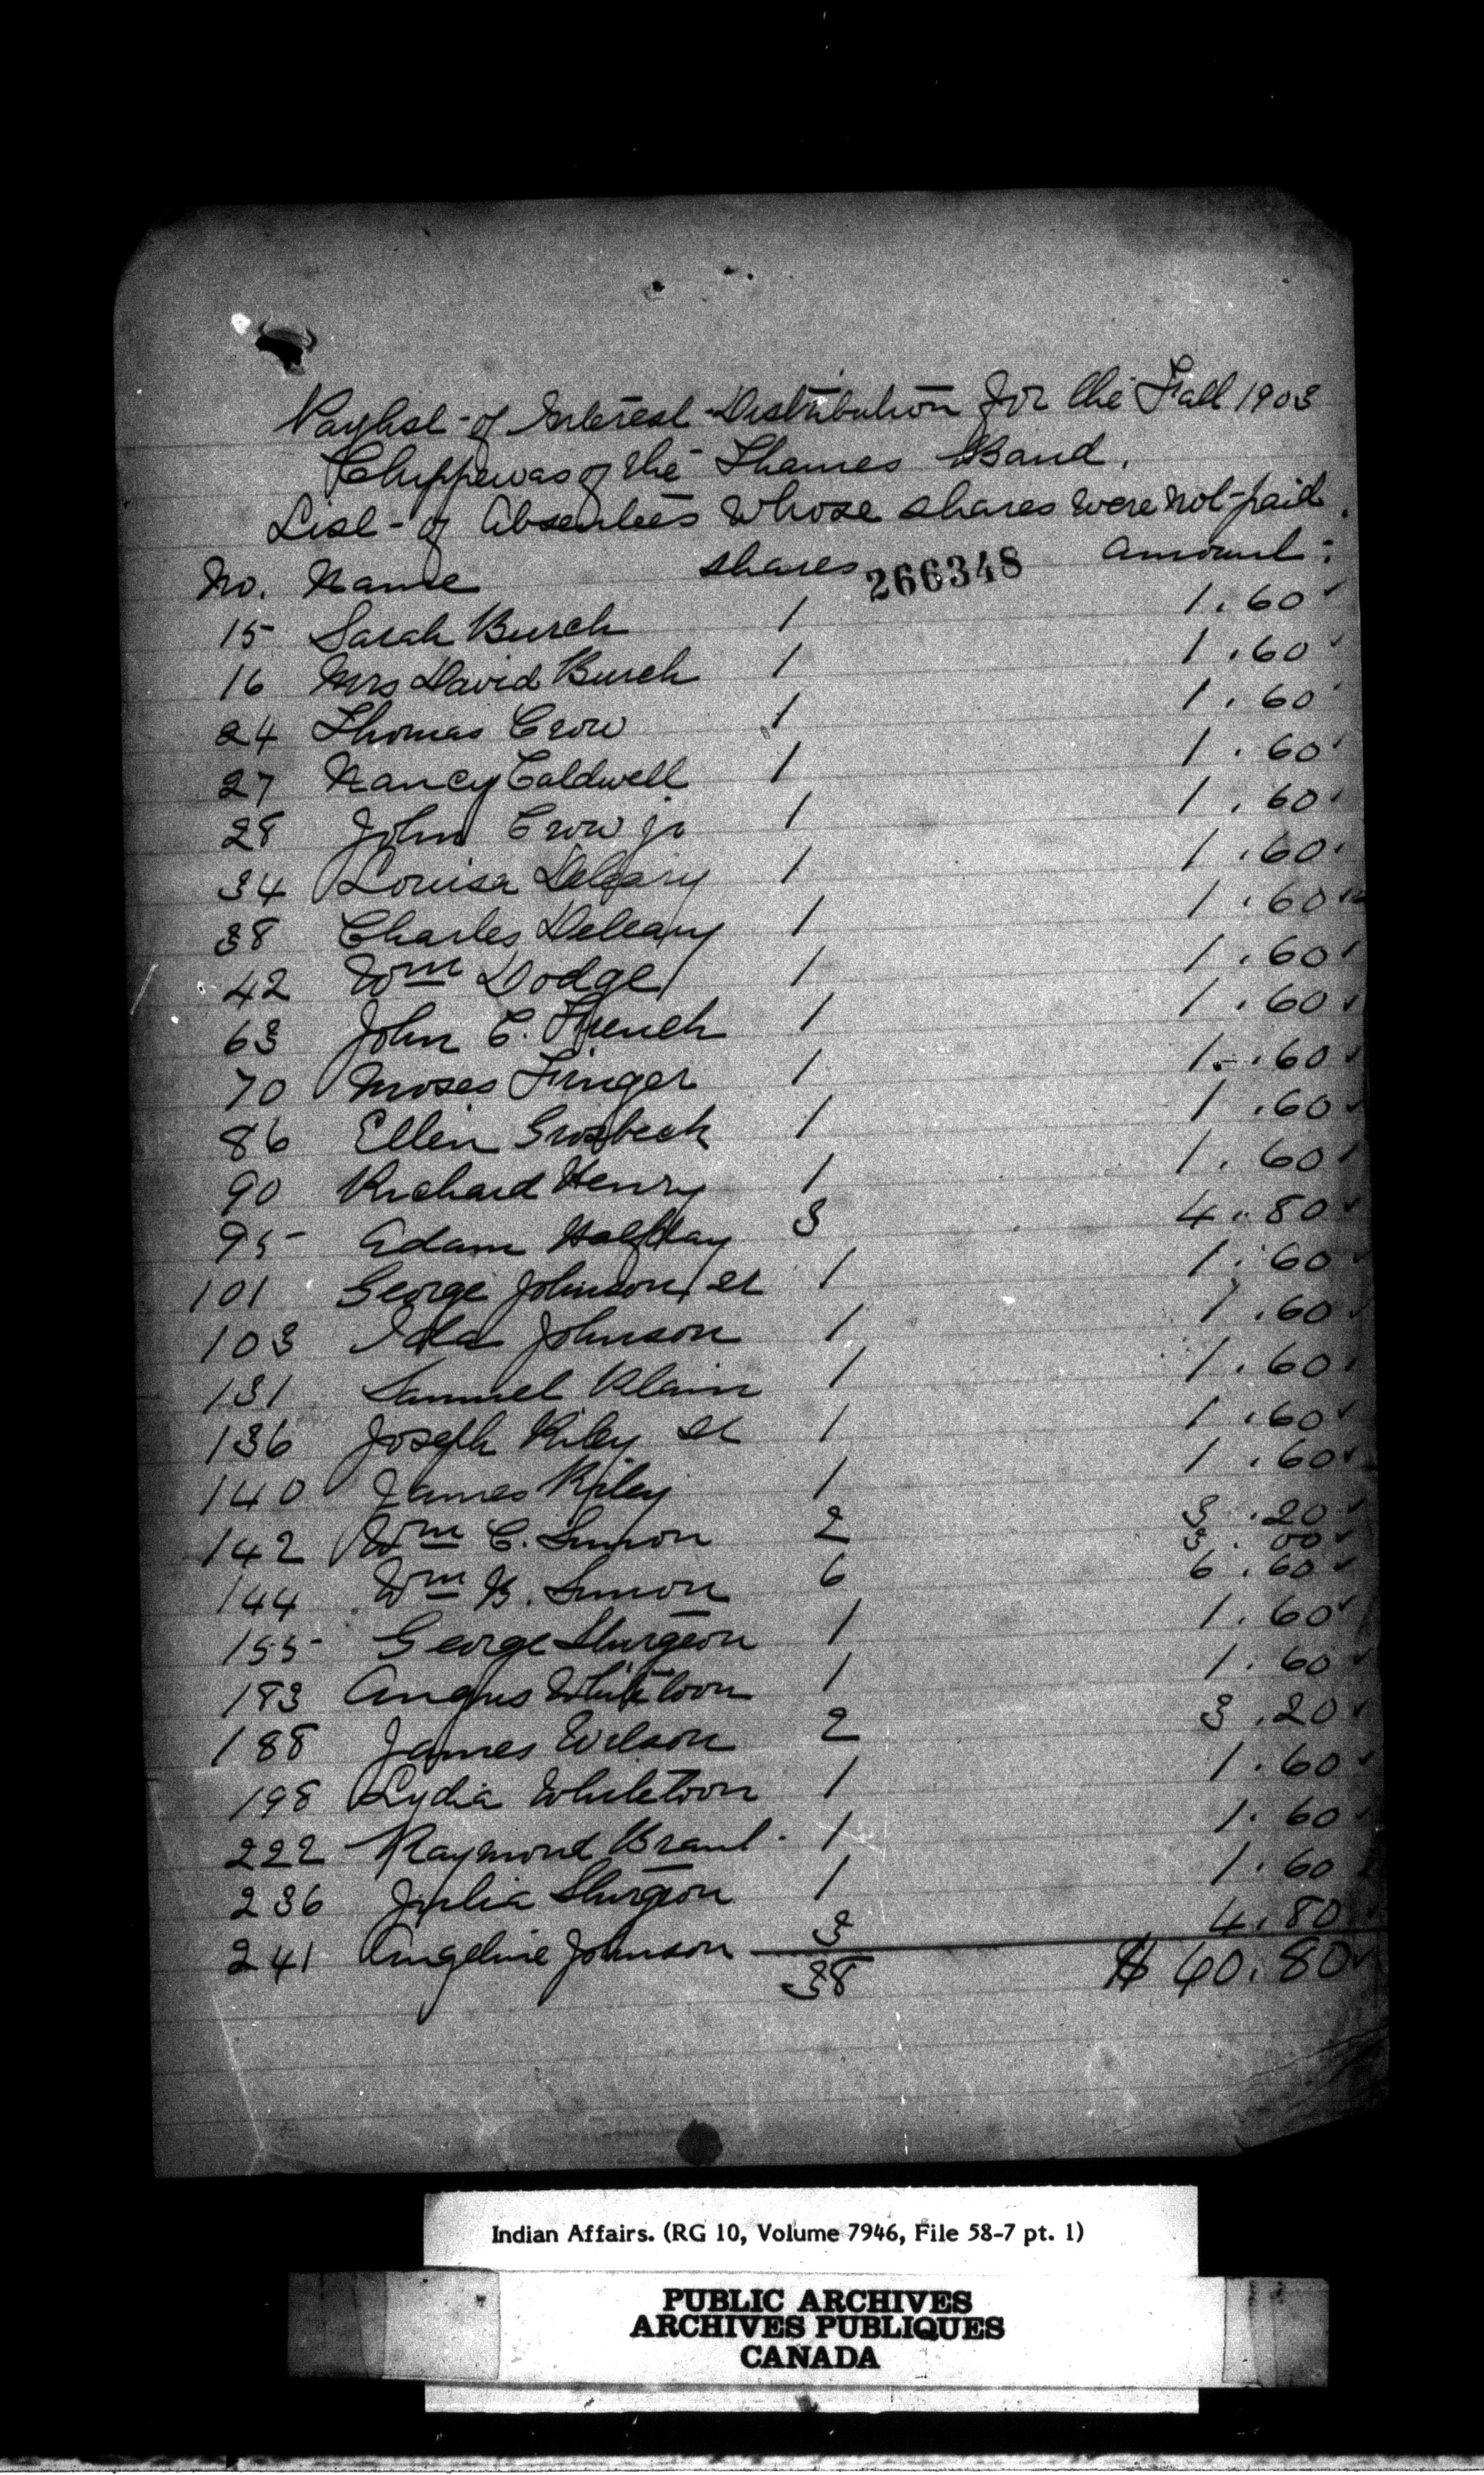 Paylist of Interest Distribution for the Fall 1903
Chippewas of the Thames Band.
List of Absentees whose shares were not paid.
No. Name shares 266348 amount:
15 Sarah Burch 1 1.60
16 Mrs David Burch 1 1.60
24 Thomas Crow 1 1.60
27 Nancy Caldwell 1 1.60
28 John Crow jr 1 1.60
34 Louisa Deleary 1 1.60
38 Charles Deleary 1 1.60
42 Wm Dodge 1 1.60
63 John C. French 1 1.60
70 Moses Finger 1 1.60
86 Ellen Grosbeck 1 1.60
90 Richard Henry 1 1.60
95 Adam Halfday 3 4.80
101 George Johnson sr 1 1.60
103 Ida Johnson 1 1.60
131 Samuel Plain 1 1.60
136 Joseph Riley sr 1 1.60
140 James Riley 1 1.60
142 Wm C. Simon 2 3.20
3.00
144 Wm B. Simon 6 6.60
155 George Sturgeon 1 1.60
183 Angus Whiteloon 1 1.60
188 James Wilson 2 3.20
198 Lydia Whiteloon 1 1.60
222 Raymond Brant 1 1.60
236 Julia Sturgeon 1 1.60
241 Angeline Johnson 3 4.80
38 $60.80
Indian Affairs. (RG 10, Volume 7946, File 58-7 pt. 1)
PUBLIC ARCHIVES
ARCHIVES PUBLIQUES
CANADA